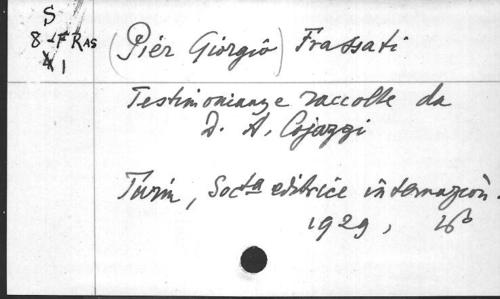 S
8-FRAS
1
(Pier Giorgio) Frassati
Testimonianze raccolte da
D. A. Cojazzi
Turin, Socta editrice internazion.
1929, in-16